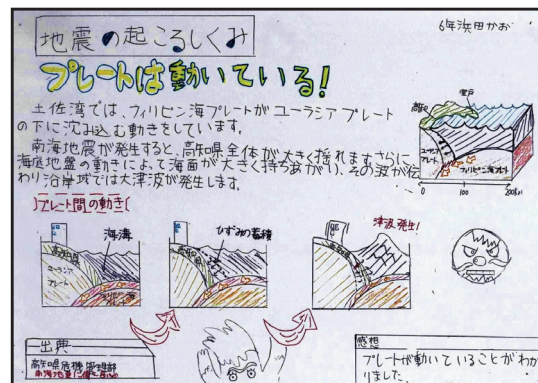 6年浜田かお
地震の起こるしくみ
プレートは動いている!
土佐湾では、フィリピン海プレートがユーラシアプレート
の下に沈み込む動きをしています。
南海地震が発生すると、高知県全体が大きく揺れます。さらに
海底地盤の動きによって海面が大きく持ちあがり、その波が伝
わり沿岸域では大津波が発生します。
高知
室戸
ユーラシア
プレート
フィリピン海プレート
0 100 200km
プレート間の動き
海溝
高知県
ユーラシア
プレート
ひずみの蓄積
高知県
津波発生!
出典
高知県危機管理部
感想
プレートが動いていることがわか
りました。